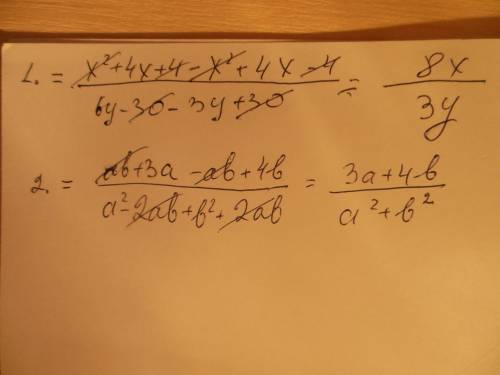 1. = (x² + 4x + 4 - x² + 4x - 4) / (6y - 30 - 3y + 30) = 8x / 3y
2. = (ab + 3a - ab + 4b) / (a² - 2ab + b² + 2ab) = (3a + 4b) / (a² + b²)